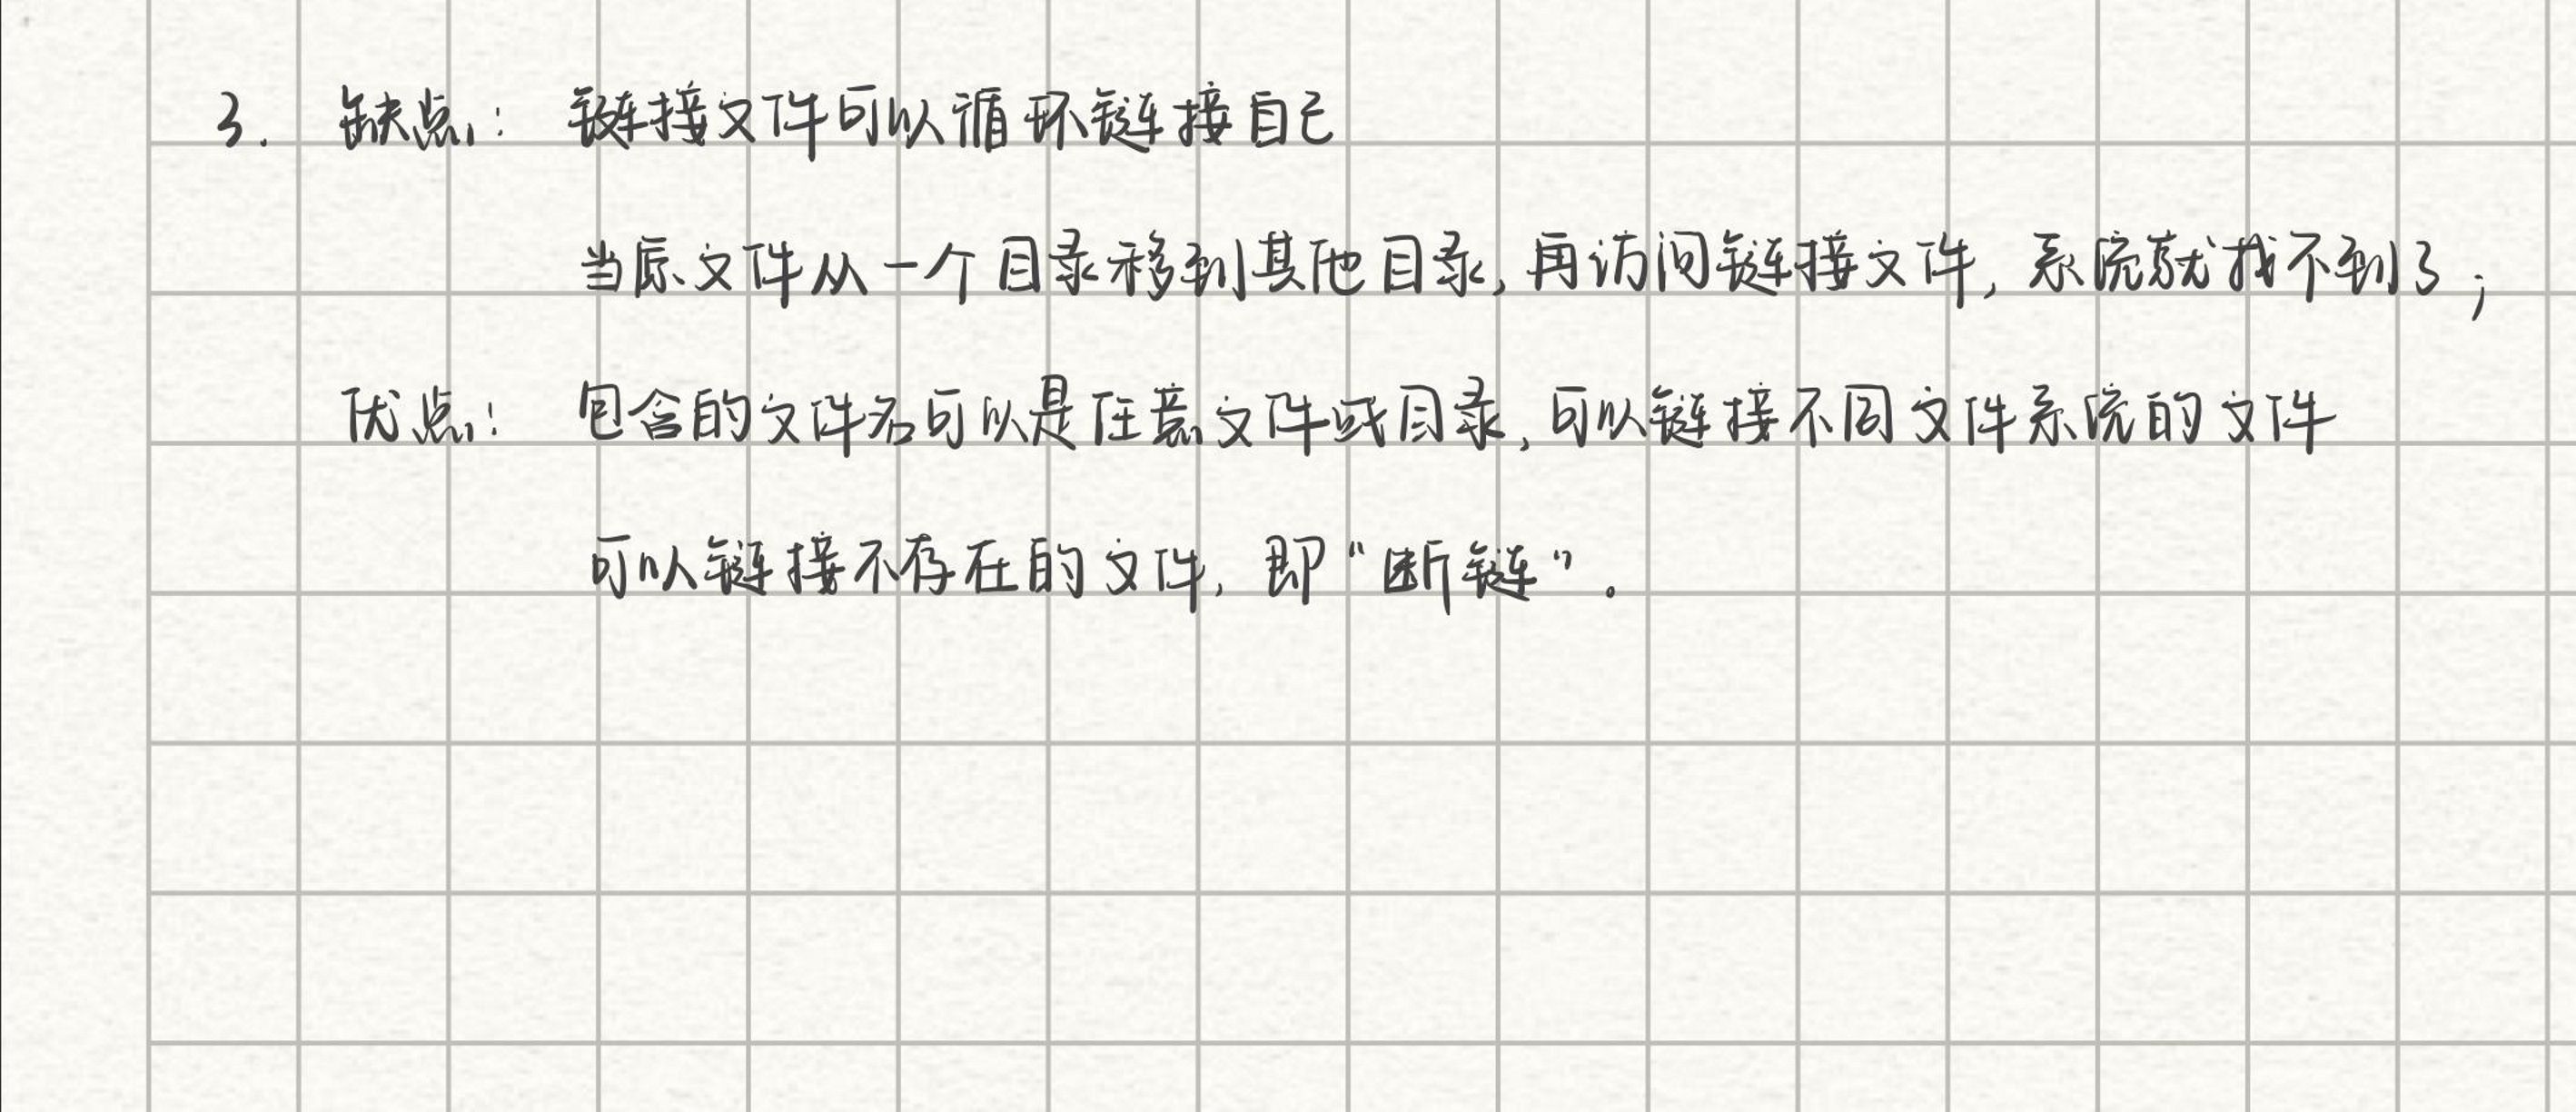 3. 缺点: 链接文件可以循环链接自己
当原文件从一个目录移到其他目录,再访问链接文件,系统就找不到了;
优点: 包含的文件名可以是任意文件或目录,可以链接不同文件系统的文件
可以链接不存在的文件,即“断链”。